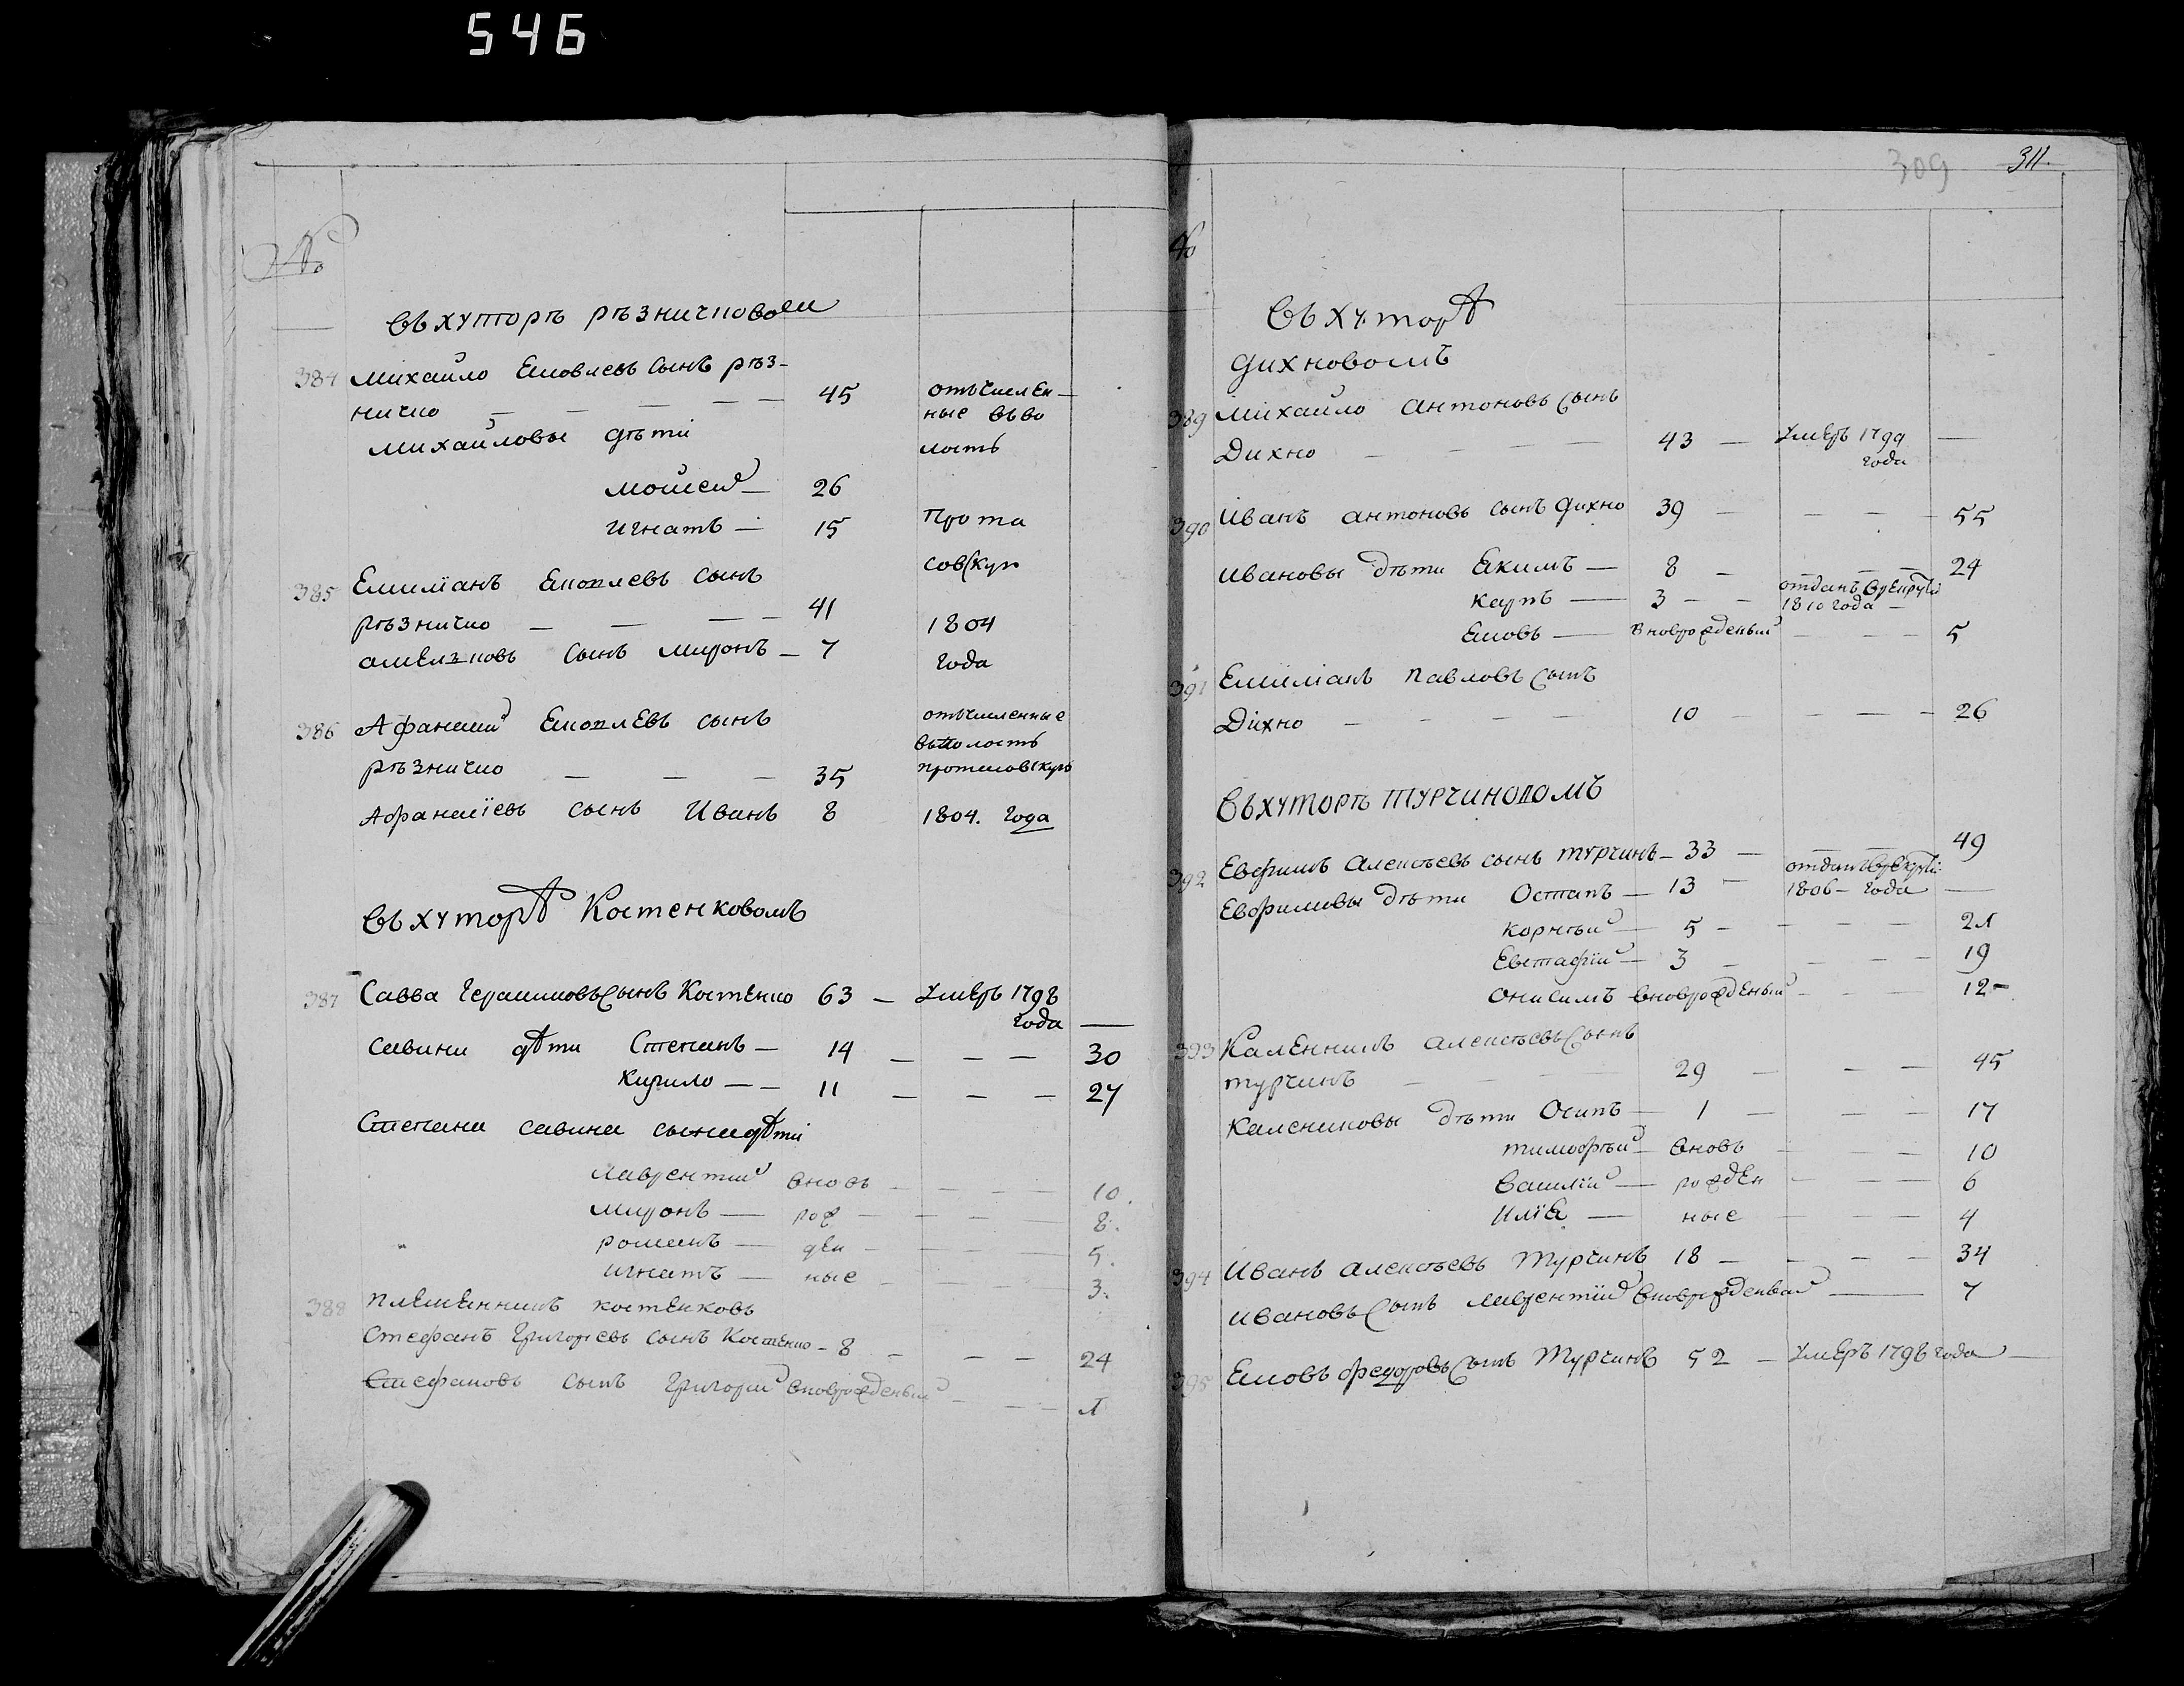 546
№
въ хуторѣ рѣзничковом
384 михайло Яковлевъ сынъ рѣз-
ничко — — — — — 45 отъчислен-
ные въво
михайловы дѣти лость
мойсей — 26
игнатъ — 15 прота
совскую
385 Емилїанъ Яковлевъ сынъ
рѣзничко — — — — 41 1804
амеляновъ сынъ миронъ — 7 года
386 Афанасий Яковлевъ сынъ отъчисленные
въволость
рѣзничко — — — 35 протасовскую
Афанасїевъ сынъ Иванъ 8 1804. года
въ хуторѣ Костенковомъ
387 Савва Герасимовъ сынъ Костенко 63 — умеръ 1798
года —
савини дѣти Степанъ — 14 — — — 30
Кирило — — 11 — — — 27
Степана савина сына дѣти
лаврентий вновь — — — — 10.
миронъ — рож — — — — 8.
романъ — ден — — — — 5.
игнатъ — ные — — — — 3.
388 племенникъ костенковъ
Стефанъ Григорїевъ сынъ Костенко — 8 — — — 24
Стефановъ сынъ Григорий вновьрожденый — — — 1
309 311.
№
въ хуторѣ
дихновомъ
389 михайло антоновъ сынъ
Дихно — — — — 43 — умеръ 1799 —
года
390 иванъ антоновъ сынъ дихно 39 — — — — 55
ивановы дѣти Якимъ — 8 — — — 24
карпъ — 3 — — отданъ врекруты
1810 года —
Яковъ — вновьрожденый — — — 5
391 Емилїанъ павловъ сынъ
Дихно — — — — 10 — — — — 26
въ хуторѣ турчиновомъ
392 Евфимъ алексѣевъ сынъ турчинъ — 33 — — — 49
Евфимовы дѣти Остапъ — 13 — отданъ врекруты
1806 — года —
корнѣй — 5 — — — — 21
Евстафїй — 3 — — — — 19
онисимъ вновьрожденый — — — 12 —
393 Каленникъ алексѣевъ сынъ
турчинъ — — — 29 — — — 45
калениковы дѣти Осипъ — 1 — — — 17
тимофѣй — вновь — — — 10
василїй — рожден — — — 6
илїя — ные — — 4
394 иванъ алексѣевъ турчинъ 18 — — — — 34
ивановъ сынъ лаврентїй вновьрожденый — 7
395 Яковъ федоровъ сынъ турчинъ 52 — умеръ 1798 года —